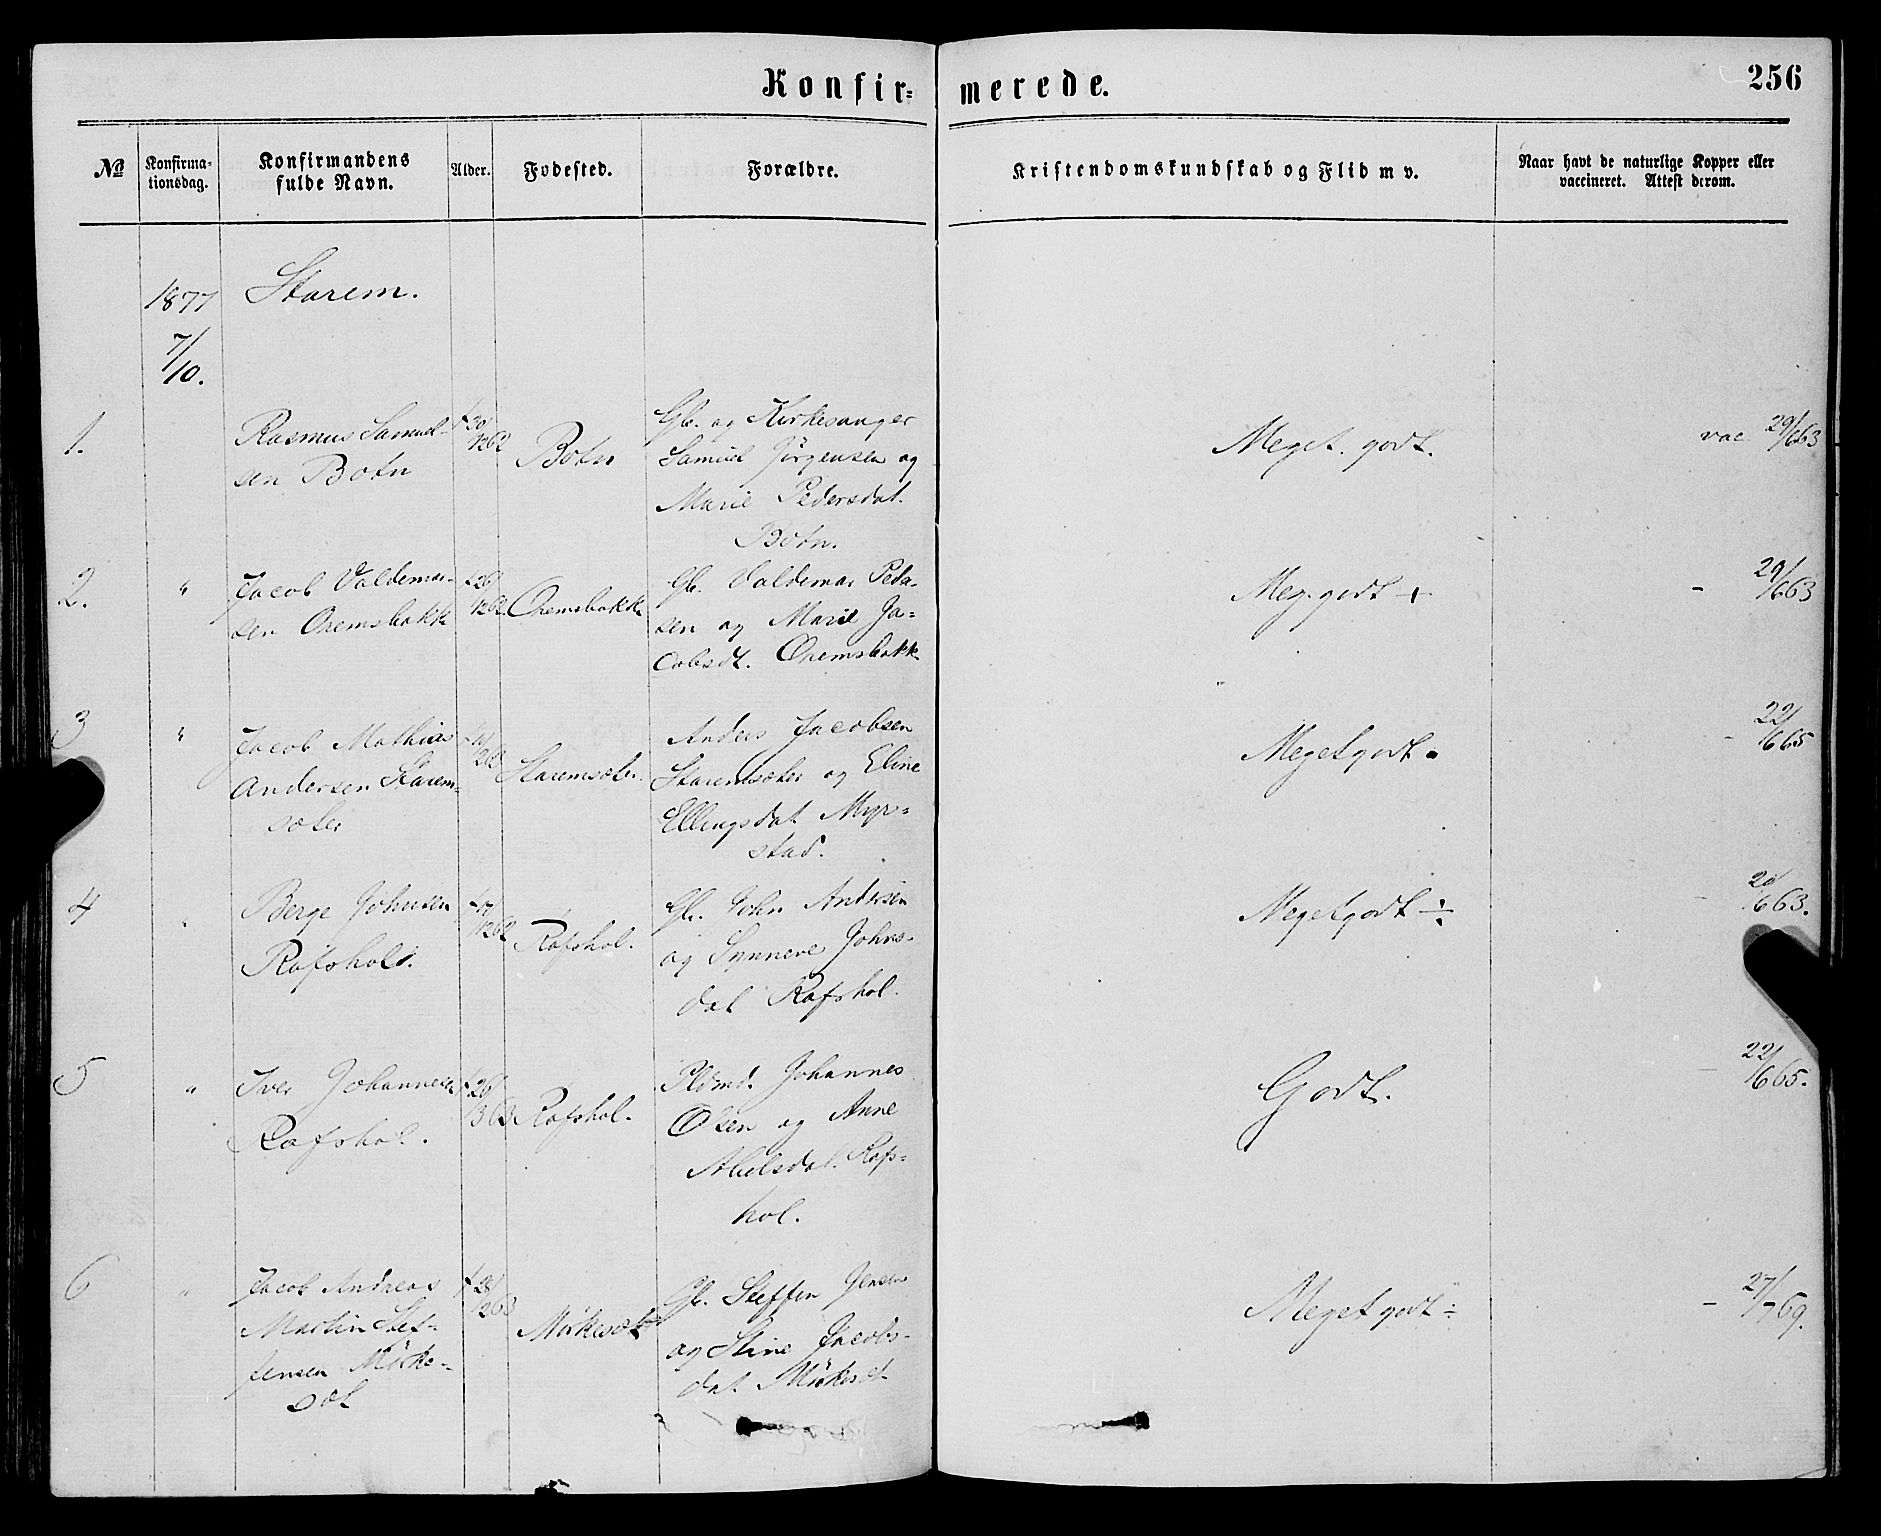 Konfir=
merede.
256
No
Konfirma-
tionsdag.
Konfirmandens
fulde Navn.
Alder.
Fødested.
Forældre.
Kristendomskundskab og Flid m v.
Naar havt de naturlige Kopper eller
vaccineret. Attest derom.
1877
Starem.
7/10.
1.
Rasmus Samuel-
sen Botn
30/12 62
Botn
Gb. og Kirkesanger
Samuel Jørgensen og
Marie Pedersdat.
Botn.
Meget godt.
vac 29/6 63
2.
"
Jacob Valdemar-
sen Oremsbakk
26/12 62
Oremsbakk
Gb. Valdemar Peder-
sen og Marie Ja=
cobsdt. Oremsbakk
Meg. godt +
- 29/6 63
3
"
Jacob Mathias
Andersen Starem-
sæter
Staremsæter.
Anders Jacobsen
Staremsæter og Eline
Ellingsdat Myr=
stad.
Meget godt.
- 22/6 65
4
"
Berge Johnsen
Rafshol.
17/12 62
Rafshol.
Gb. John Andersen
og Synneve Johns-
dat Rafshol.
Meget godt ÷
- 6 63.
5
"
Iver Johannesen
Rafshol.
26/3 63
Rafshol.
Pldmd. Johannes
Olsen og Anne
Abelsdat. Rafs=
hol.
Godt.
- 22/6 65.
6
"
Jacob Andreas
Martin Stef-
fensen Mörke-
sæt
28/12 63
Mörkesæt
Gb. Steffen Jensen
og Stine Jacobs-
dat Mörkesæt
Meget godt ÷
- 27/7 69.